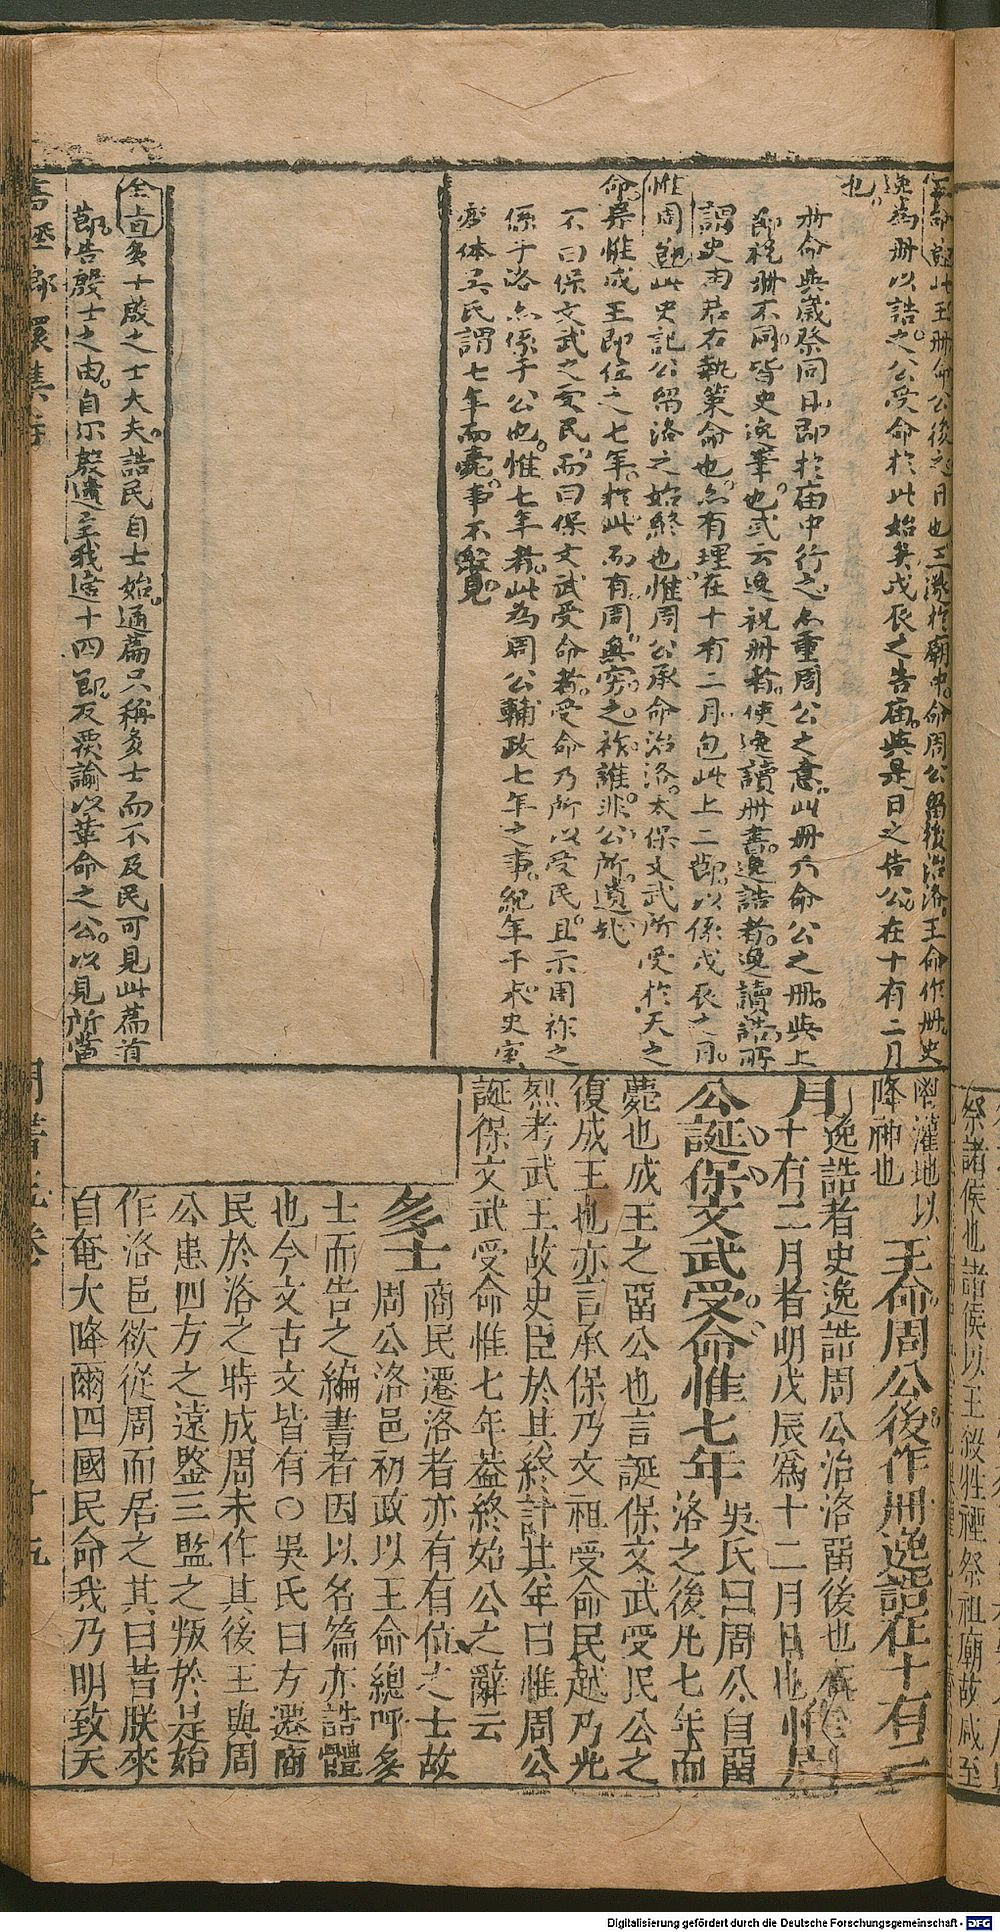 王命節此王册命公後之日也王祼於廟中命周公留後治洛王命作册史
逸為册以誥之公受命於此始矣戊辰之告庙與是日之告公在十有二月
也
册命與歲祭同日即於庙中行之亦重周公之意此册乃命公之册與上
節祝册不同皆史逸筆也或云逸祝册者使逸讀册書逸誥者逸讀誥所
謂史由君右執策命也亦有理在十有二月包此上二節以係戊辰之日
惟周節此史記公留洛之始終也惟周公承命治洛大保文武所受於天之
命 惟成王即位之七年於此而有周無穷之祚誰非公所遺哉
不曰保文武之受民而曰保文武受命者受命乃所以受民且示周祚之
係于洛亦係于公也惟七年者此為周公輔政七年之事紀年于末史家
变体吴氏謂七年而薨事不經見
全旨多士殷之士大夫誥民自士始通篇只稱多士而不及民可見此篇首
節告殷士之由自尔殷遺至我適十四節反覆諭以革命之公以見所當
地以
降神也 王命周公後作册逸誥在十有二
月 逸誥者史逸誥周公治洛留後也
十有二月者明戊辰爲十二月日也惟周
公誕保文武受命惟七年 吳氏曰周公自留
洛之後凡七年而
薨也成王之留公也言誕保文武受民公之
復成王也亦言承保乃文祖受命民越乃光
烈考武王故史臣於其終計其年曰惟周公
誕保文武受命惟七年葢終始公之辭云
多士 商民遷洛者亦有有位之士故
周公洛邑初政以王命總呼多
士而告之編書者因以名篇亦誥體
也今文古文皆有○吳氏曰方遷商
民於洛之時成周未作其後王與周
公患四方之遠鑒三監之叛於是始
作洛邑欲從周而居之其曰昔朕來
自奄大降爾四國民命我乃明致天
周書五卷
十五
祭諸侯也諸侯以王殺牲禋祭祖廟故咸至
Digitalisierung gefördert durch die Deutsche Forschungsgemeinschaft - DFG